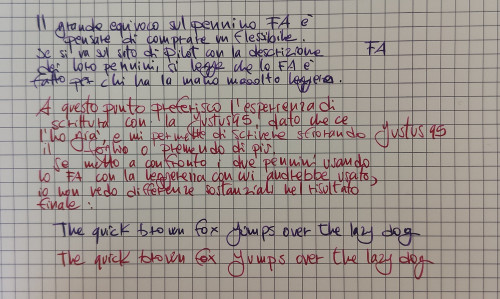 Il grande equivoco sul pennino FA è
pensare di comprare un flessibile.
Se si va sul sito di Pilot con la descrizione
dei loro pennini, si legge che lo FA è
fatto per chi ha la mano molto leggera.
FA
A questo punto preferisco l'esperienza di
scrittura con la Justus95, dato che ce
l'ho già e mi permette di scrivere sfiorando
il foglio o premendo di più.
Justus 95
Se metto a confronto i due pennini usando
lo FA con la leggerezza con cui andrebbe usato,
io non vedo differenze sostanziali nel risultato
finale:
The quick brown fox jumps over the lazy dog
The quick brown fox jumps over the lazy dog